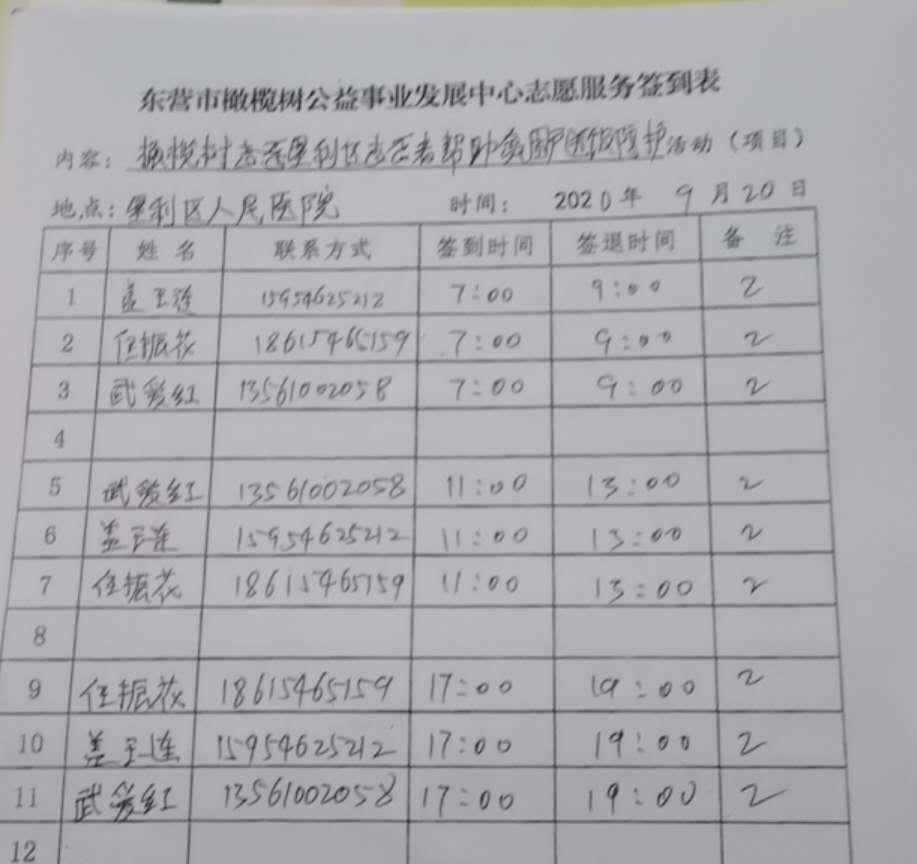 东营市橄榄树公益事业发展中心志愿服务签到表
内容：橄榄树志愿垦利区志愿者帮助贫困 活动（项目）
地点：垦利区人民医院 时间： 2020年 9月20日
序号 姓名 联系方式 签到时间 签退时间 备注
1 盖玉连 15954625212 7:00 9:00 2
2 任振花 18615465159 7:00 9:00 2
3 武爱红 13561002058 7:00 9:00 2
4
5 武爱红 13561002058 11:00 13:00 2
6 盖玉连 15954625212 11:00 13:00 2
7 任振花 18615465159 11:00 13:00 2
8
9 任振花 18615465159 17:00 19:00 2
10 盖玉连 15954625212 17:00 19:00 2
11 武爱红 13561002058 17:00 19:00 2
12